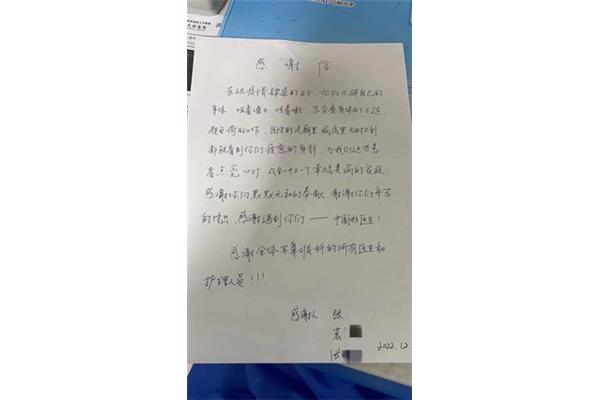 感谢信
在这疫情肆虐的日子,你们不顾自己的
身体,哑着嗓子,咳着嗽,忍受着身体的不适,
超负荷的工作,医院的走廊里病房里无时无刻
都能看到你们疲惫的身影,为我们这些患
者点亮心灯,成全一个个幸福美满的家庭,
感谢你们默默无私的奉献,谢谢你们辛苦
的付出,感谢遇到你们——中国好医生!
感谢全体耳鼻喉科的所有医生和
护理人员!!!
感谢人 张
袁
洪
2022.12